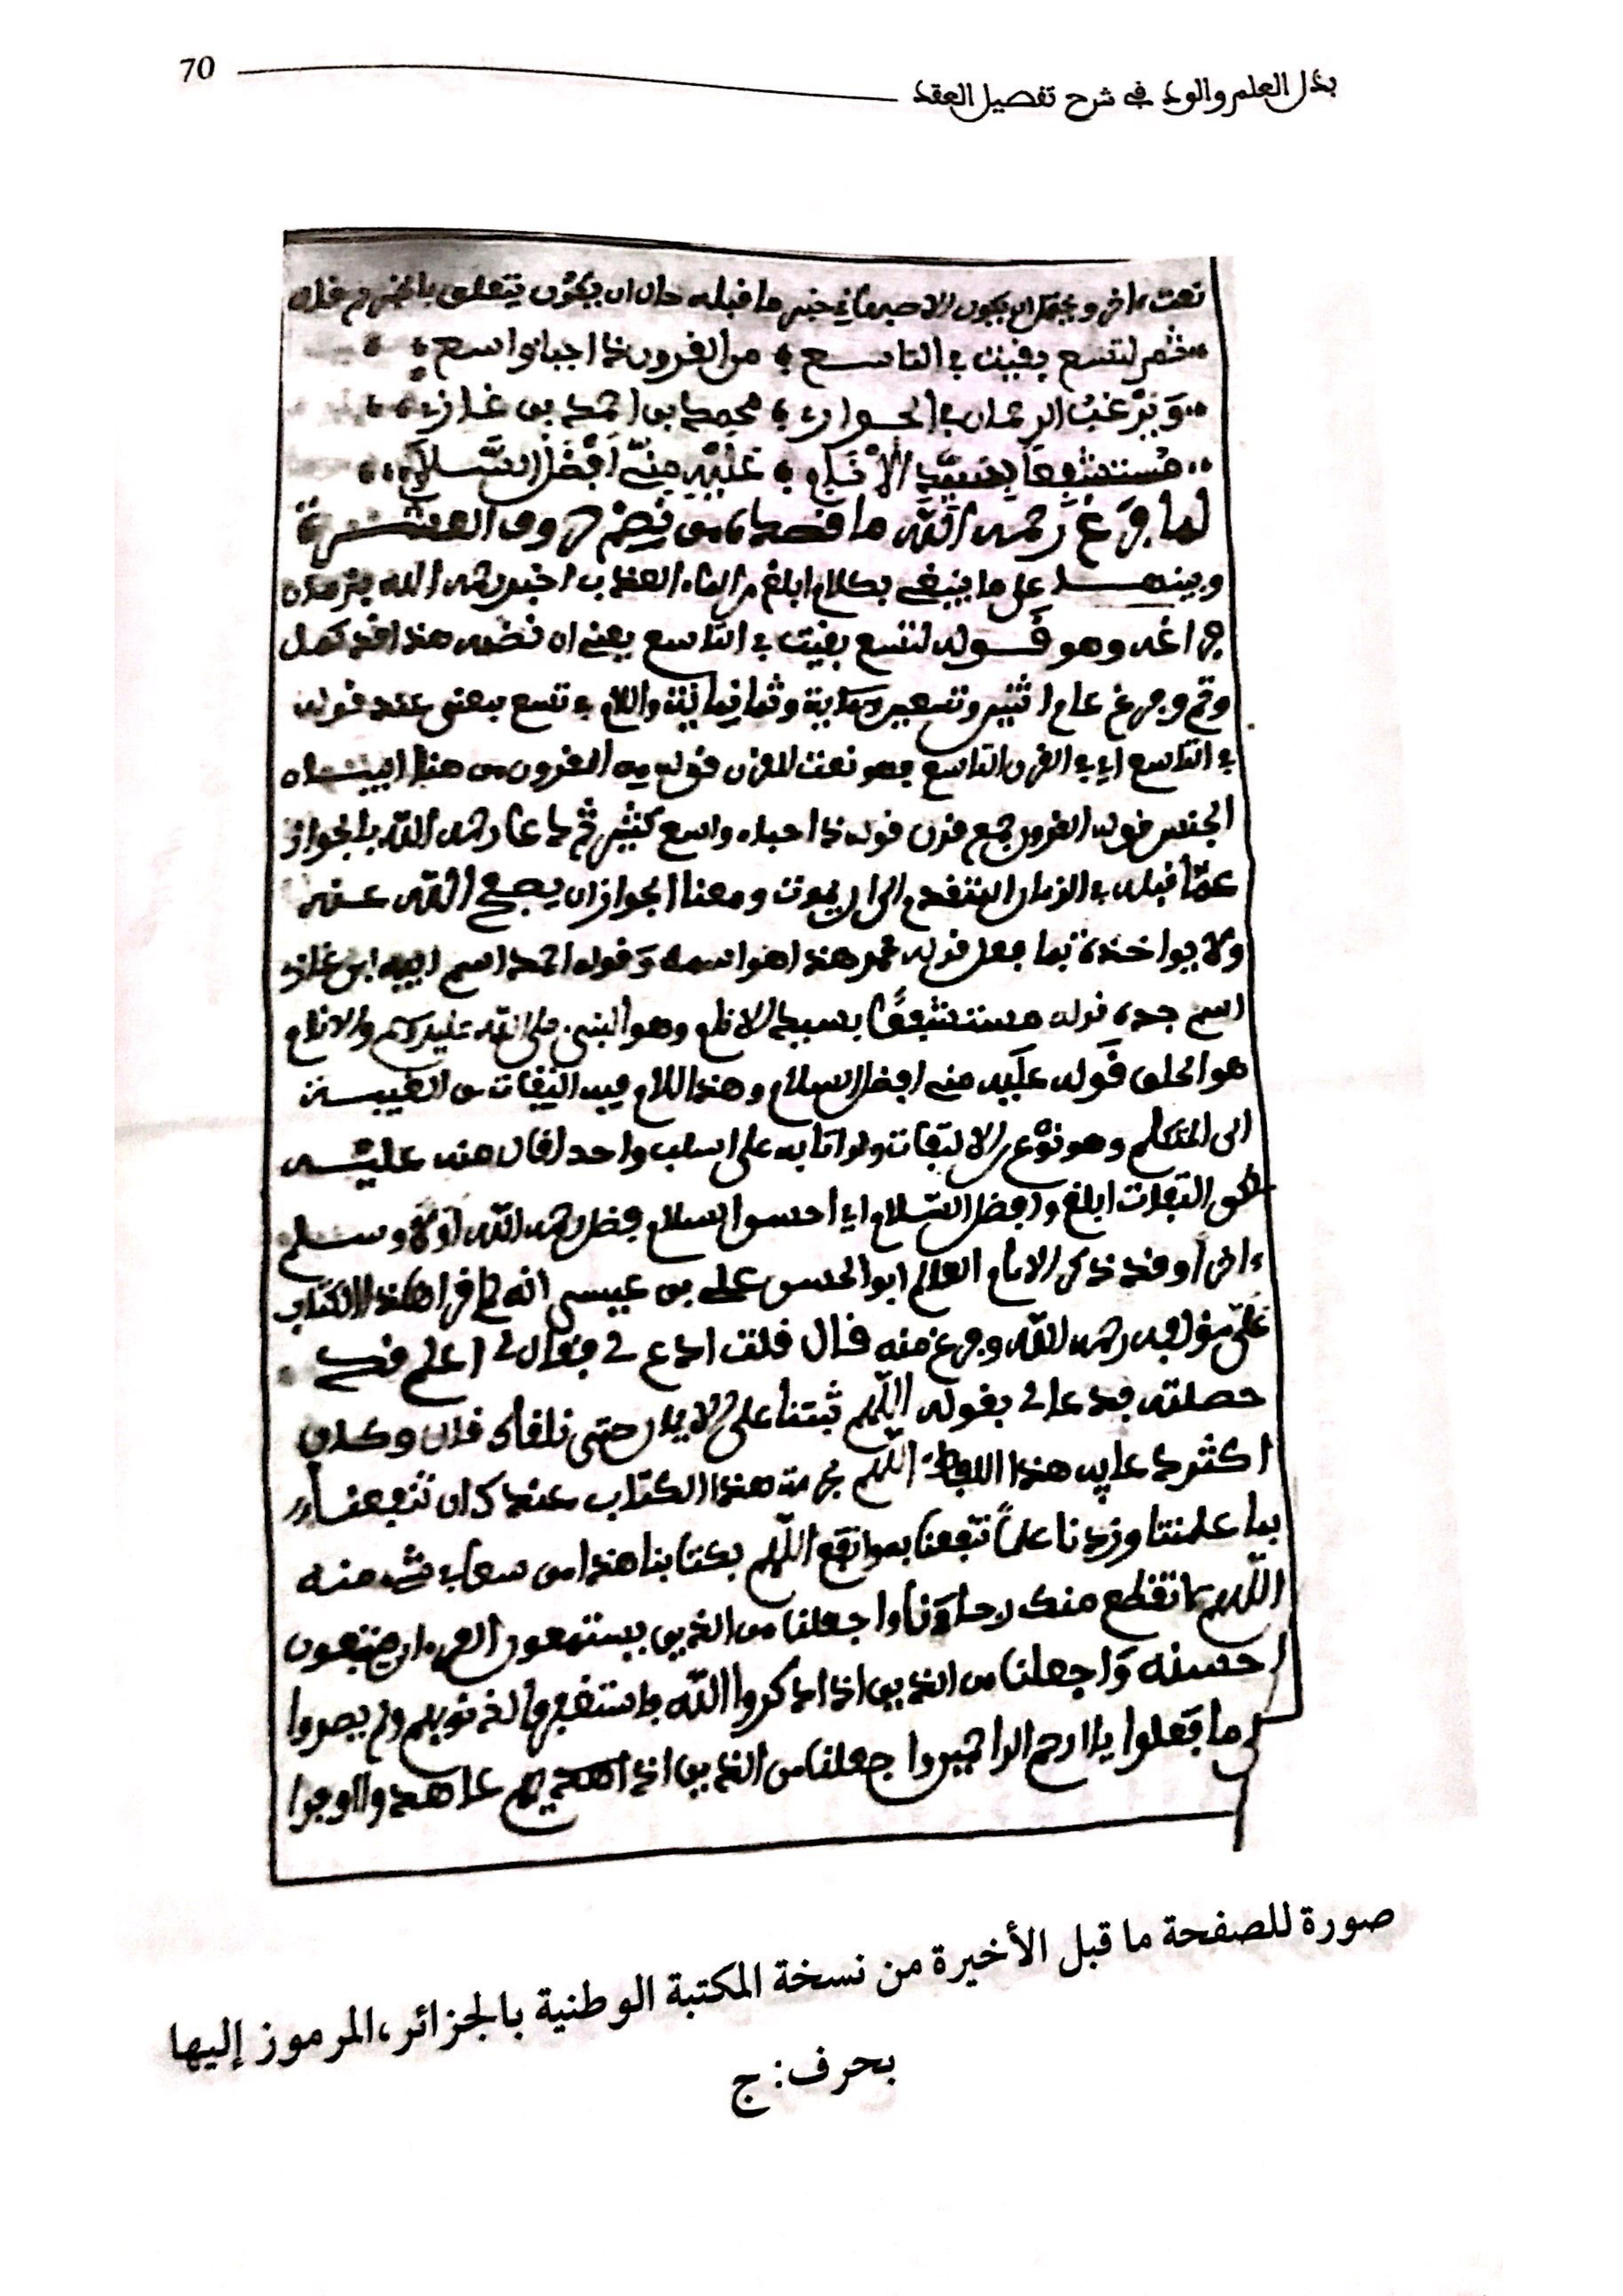 70
بذل العلم والود في شرح تفصيل العقد
نعت اخر ويحتمل ان يكون ما قبله حال ان يكون يتعلق
لتسع بقيت في التاسع من القرون
ويرغب الرحمان في الجواز محمد بن احمد بن غازي
مستشفعا بسيد الانام عليه مني افضل السلام
لما فرغ رحمه الله ما قصد من نظم حروف العشرة
وبينها على ما ينبغي بكلام ابلغ اخبر رحمه الله
فراغه وهو قوله لتسع بقيت في التاسع يعني ان نظمه هذا قد كمل
وتم وفرغ عام اثنين وتسعين وثمانمائة واللام في تسع بمعنى عند قوله
في التاسع اي في القرن التاسع فهو نعت للقرن قوله من القرون من هنا
الجنس قوله القرون جمع قرن قوله واسع كثير ثم دعا رحمه الله بالجواز
عما قبله في الزمان المتقدم الى ان يموت ومعنا الجواز ان يصفح الله عنه
ولا يواخذه بما فعل قوله محمد هذا هو اسمه وقوله احمد اسم ابيه ابن غازي
اسم جده قوله مستشفعا بسيد الانام وهو النبي صلى الله عليه وسلم والانام
هو الخلق قوله عليه مني افضل السلام وهذا الكلام فيه التفات من الغيبة
الى المتكلم وهو نوع من الالتفات ولو اتا به على اسلب واحد لقال منه عليه
لكن التفات ابلغ وافضل السلام اي احسن السلام فضل رحمه الله اولا وسلم
ءاخرا وقد ذكر الامام العالم ابو الحسن علي بن عيسى انه لما قرا هذا الكتاب
على مؤلفه رحمه الله وفرغ منه قال قلت ادع لي فقال لي اعلم قد
حصلته فدعا لي بقوله اللهم ثبتنا على الايمان حتى نلقاك قال وكان
اكثر دعايه هذا اللفظ اللهم بحرمة هذا الكتاب عندك ان تنفعنا
بما علمتنا وزدنا علما تنفعنا به وانفع اللهم بكتابنا هذا من سعا في شيء منه
اللهم لا تقطع منك رجاءنا واجعلنا من الذين يستمعون القول فيتبعون
احسنه واجعلنا من الذين اذا ذكروا الله فاستغفروا لذنوبهم ولم يصروا
على ما فعلوا يا ارحم الراحمين واجعلنا من الذين اذا عاهدوا اوفوا
صورة للصفحة ما قبل الأخيرة من نسخة المكتبة الوطنية بالجزائر،المرموز إليها
بحرف: ج